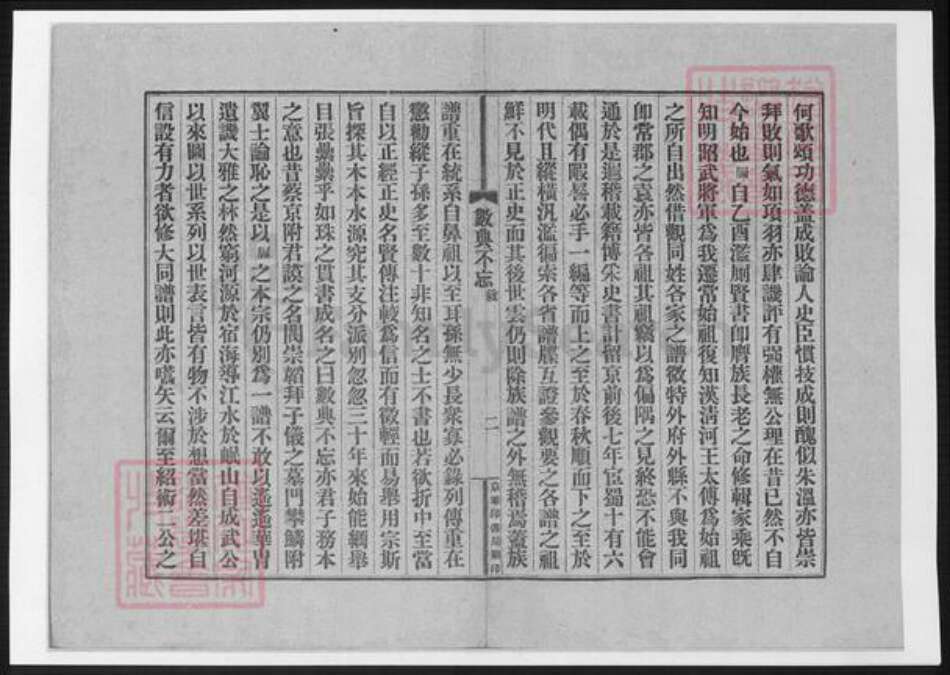 何歌頌功德蓋成敗論人史臣慣技成則醜似朱溫亦皆崇
拜敗則氣如項羽亦肆譏評有强權無公理在昔已然不自
今始也 自乙酉濫厠賢書卽膺族長老之命修輯家乘旣
知明昭武將軍爲我遷常始祖復知漢淸河王太傅爲始祖
之所自出然借觀同姓各家之譜微特外府外縣不與我同
卽常郡之袁亦皆各祖其祖竊以爲偏隅之見終恐不能會
通於是遍稽載籍博采史書計留京前後七年宦蜀十有六
載偶有暇晷必手一編等而上之至於春秋順而下之至於
明代且縱橫汎濫徧索各省譜牒互證參觀要之各譜之祖
鮮不見於正史而其後世雲仍則除族譜之外無稽焉蓋族
數典不忘 敘
二
京華印書局刷印
譜重在統系自鼻祖以至耳孫無少長衆寡必錄列傳重在
懲勸縱子孫多至數十非知名之士不書也若欲折中至當
自以正經正史名賢傳注較爲信而有徵輕而易舉用宗斯
旨探其木本水源究其支分派別忽忽三十年來始能綱舉
目張纍纍乎如珠之貫書成名之曰數典不忘亦君子務本
之意也昔蔡京附君謨之名閥崇韜拜子儀之墓門攀鱗附
翼士論恥之是以 之本宗仍別爲一譜不敢以遙遙華胄
遺譏大雅之林然窮河源於宿海導江水於岷山自成武公
以來圖以世系列以世表言皆有物不涉於想當然差堪自
信設有力者欲修大同譜則此亦嚆矢云爾至紹術二公之